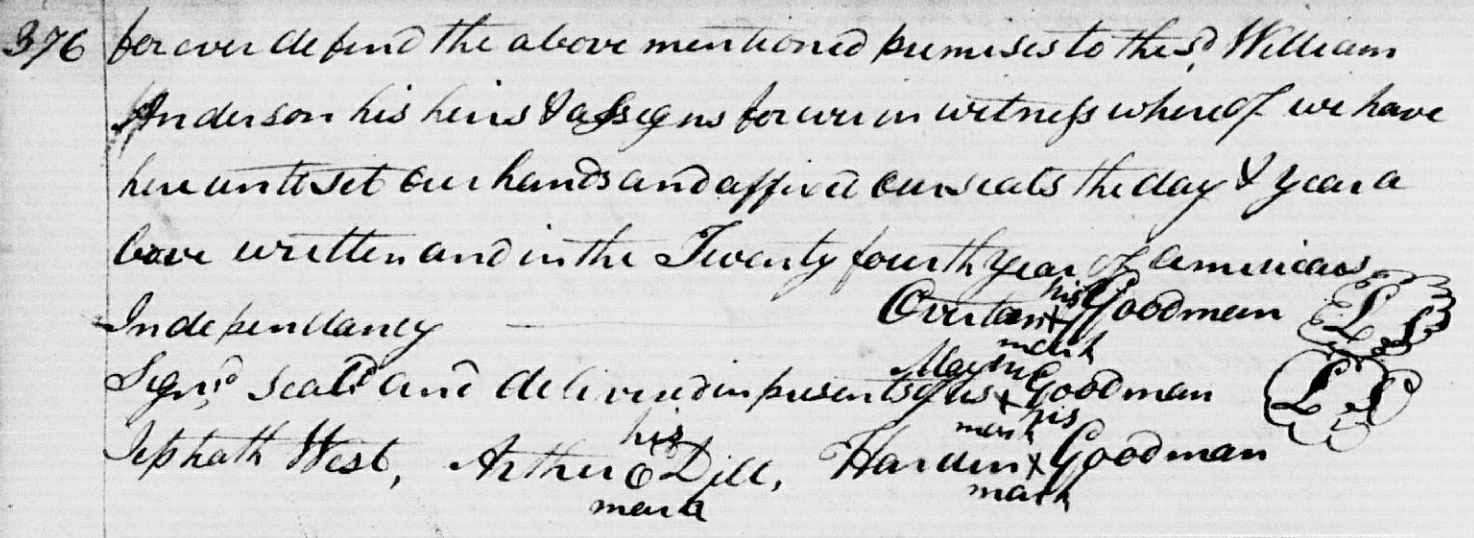 376 forever defend the above mentioned premises to the sd, William
Anderson his heirs & assigns forever in witness whereof we have
here unto set our hands and affixed our seals the day & year a
bove written and in the Twenty fourth Year of americans
Independancy
his
Overton x Goodman L S
mark
Signd, seald and delivered in presents of us
Goodman L S
mark
Jephath West, Arther O Dill,
his
mark
his
Harden x Goodman
mark